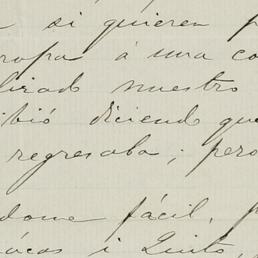 si quieren p
ropa á una co
lizad nuestro
ibió diciendo que
regresaba; pero
dome fácil, p
ácas i Quito,